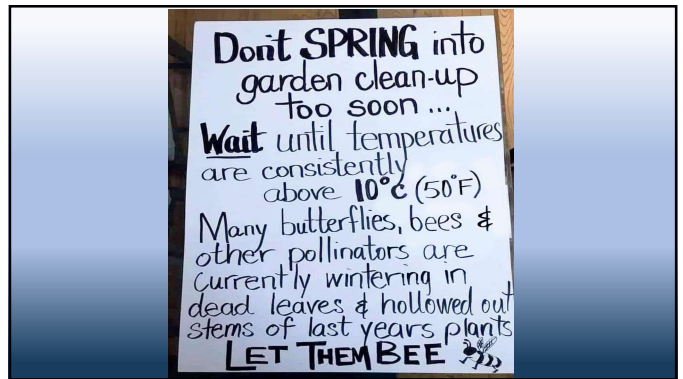 Don't SPRING into
garden clean-up
too soon ...
Wait until temperatures
are consistently
above 10°c (50°F)
Many butterflies, bees &
other pollinators are
currently wintering in
dead leaves & hollowed out
stems of last years plants
LET THEM BEE